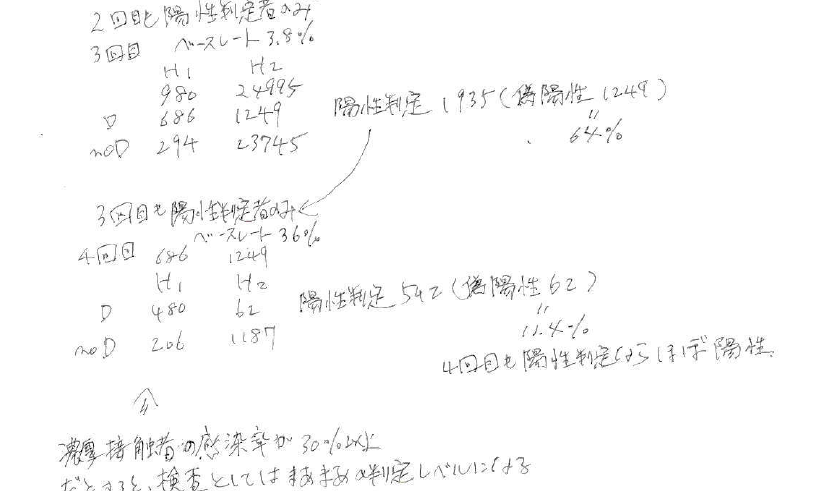 2回目も陽性判定者のみ
3回目 ベースレート 3.8%
H1 H2
980 24995
D 686 1249
noD 294 23745
陽性判定 1935(偽陽性 1249)
〃
64%
3回目も陽性判定者のみ
ベースレート 36%
4回目 686 1249
H1 H2
D 480 62
noD 206 1187
陽性判定 542(偽陽性 62)
〃
11.4%
4回目も陽性判定ならほぼ陽性
⇑
濃厚接触者の感染率が30%以上
だとすると、検査としてはまあまあの判定レベルになる